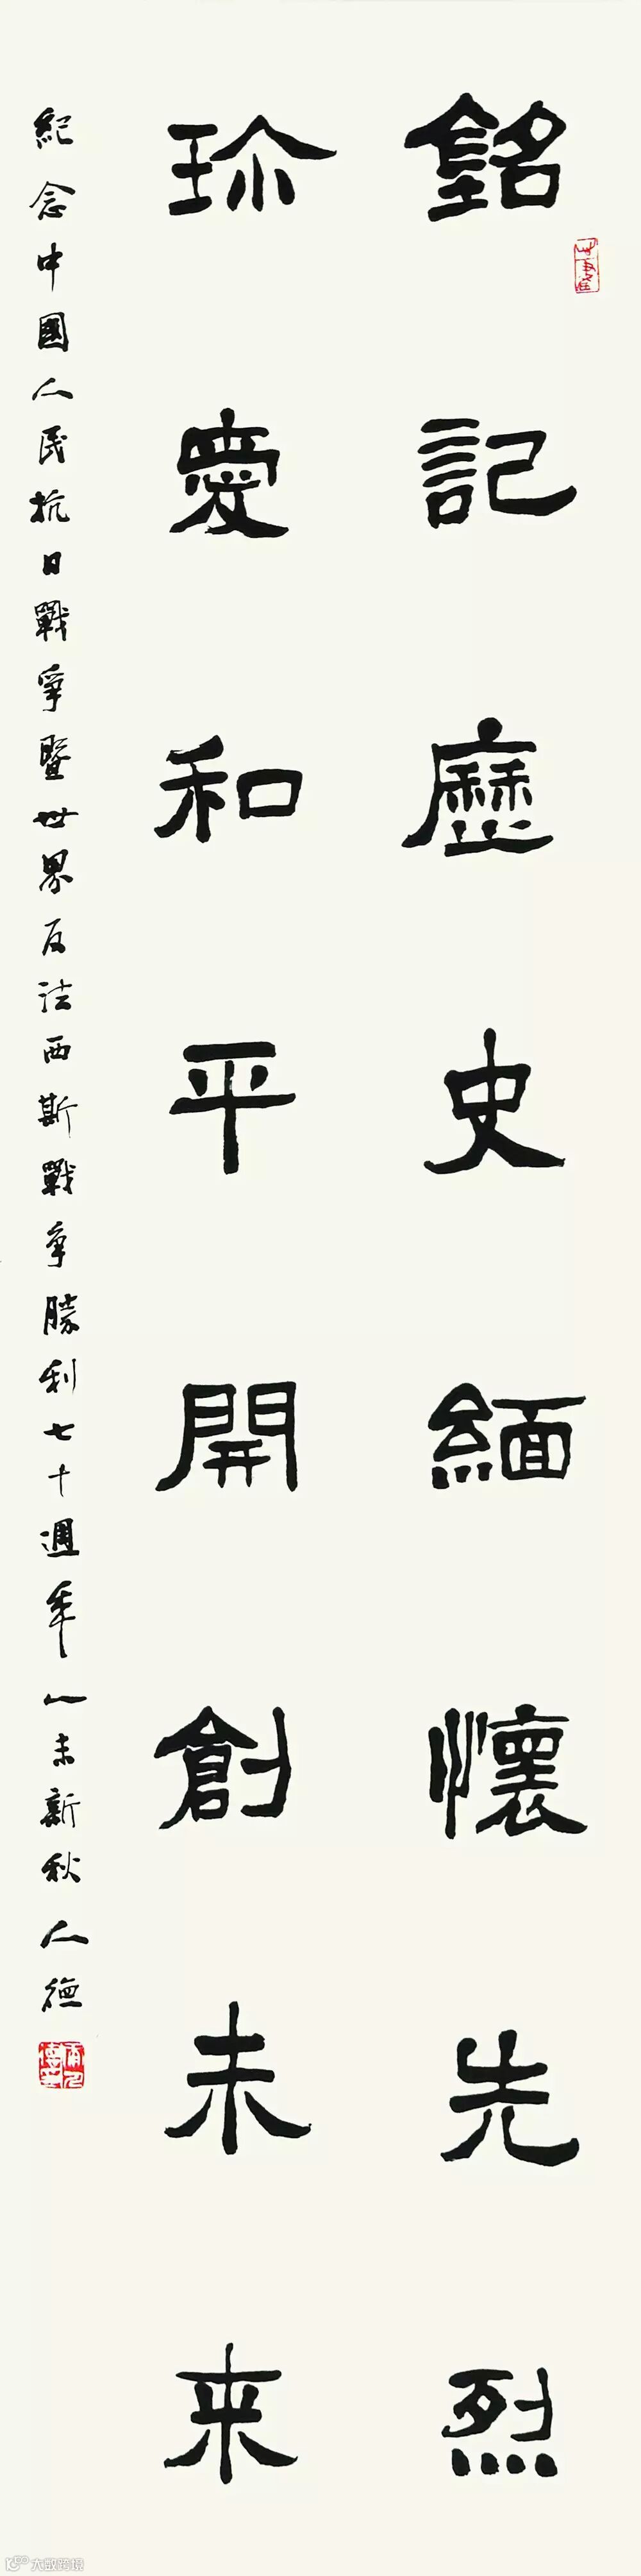 銘記歷史緬懷先烈
珍愛和平開創未来
紀念中國人民抗日戰爭暨世界反法西斯戰爭勝利七十週年乙未新秋人德
大歐跨境